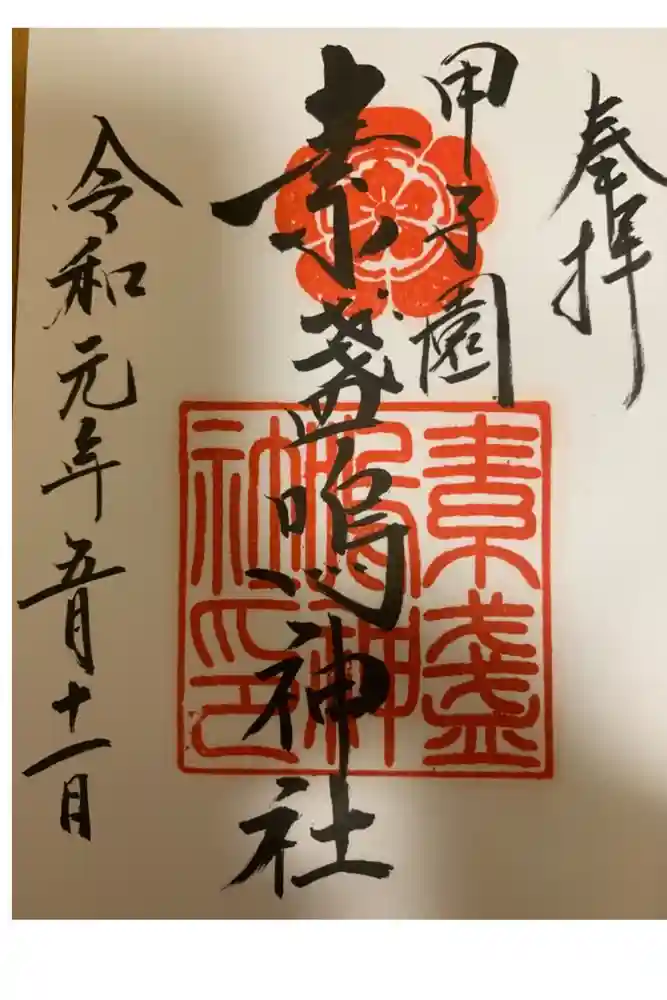 奉拝
甲子園
素盞嗚神社
令和元年五月十一日
素盞
嗚神
社印